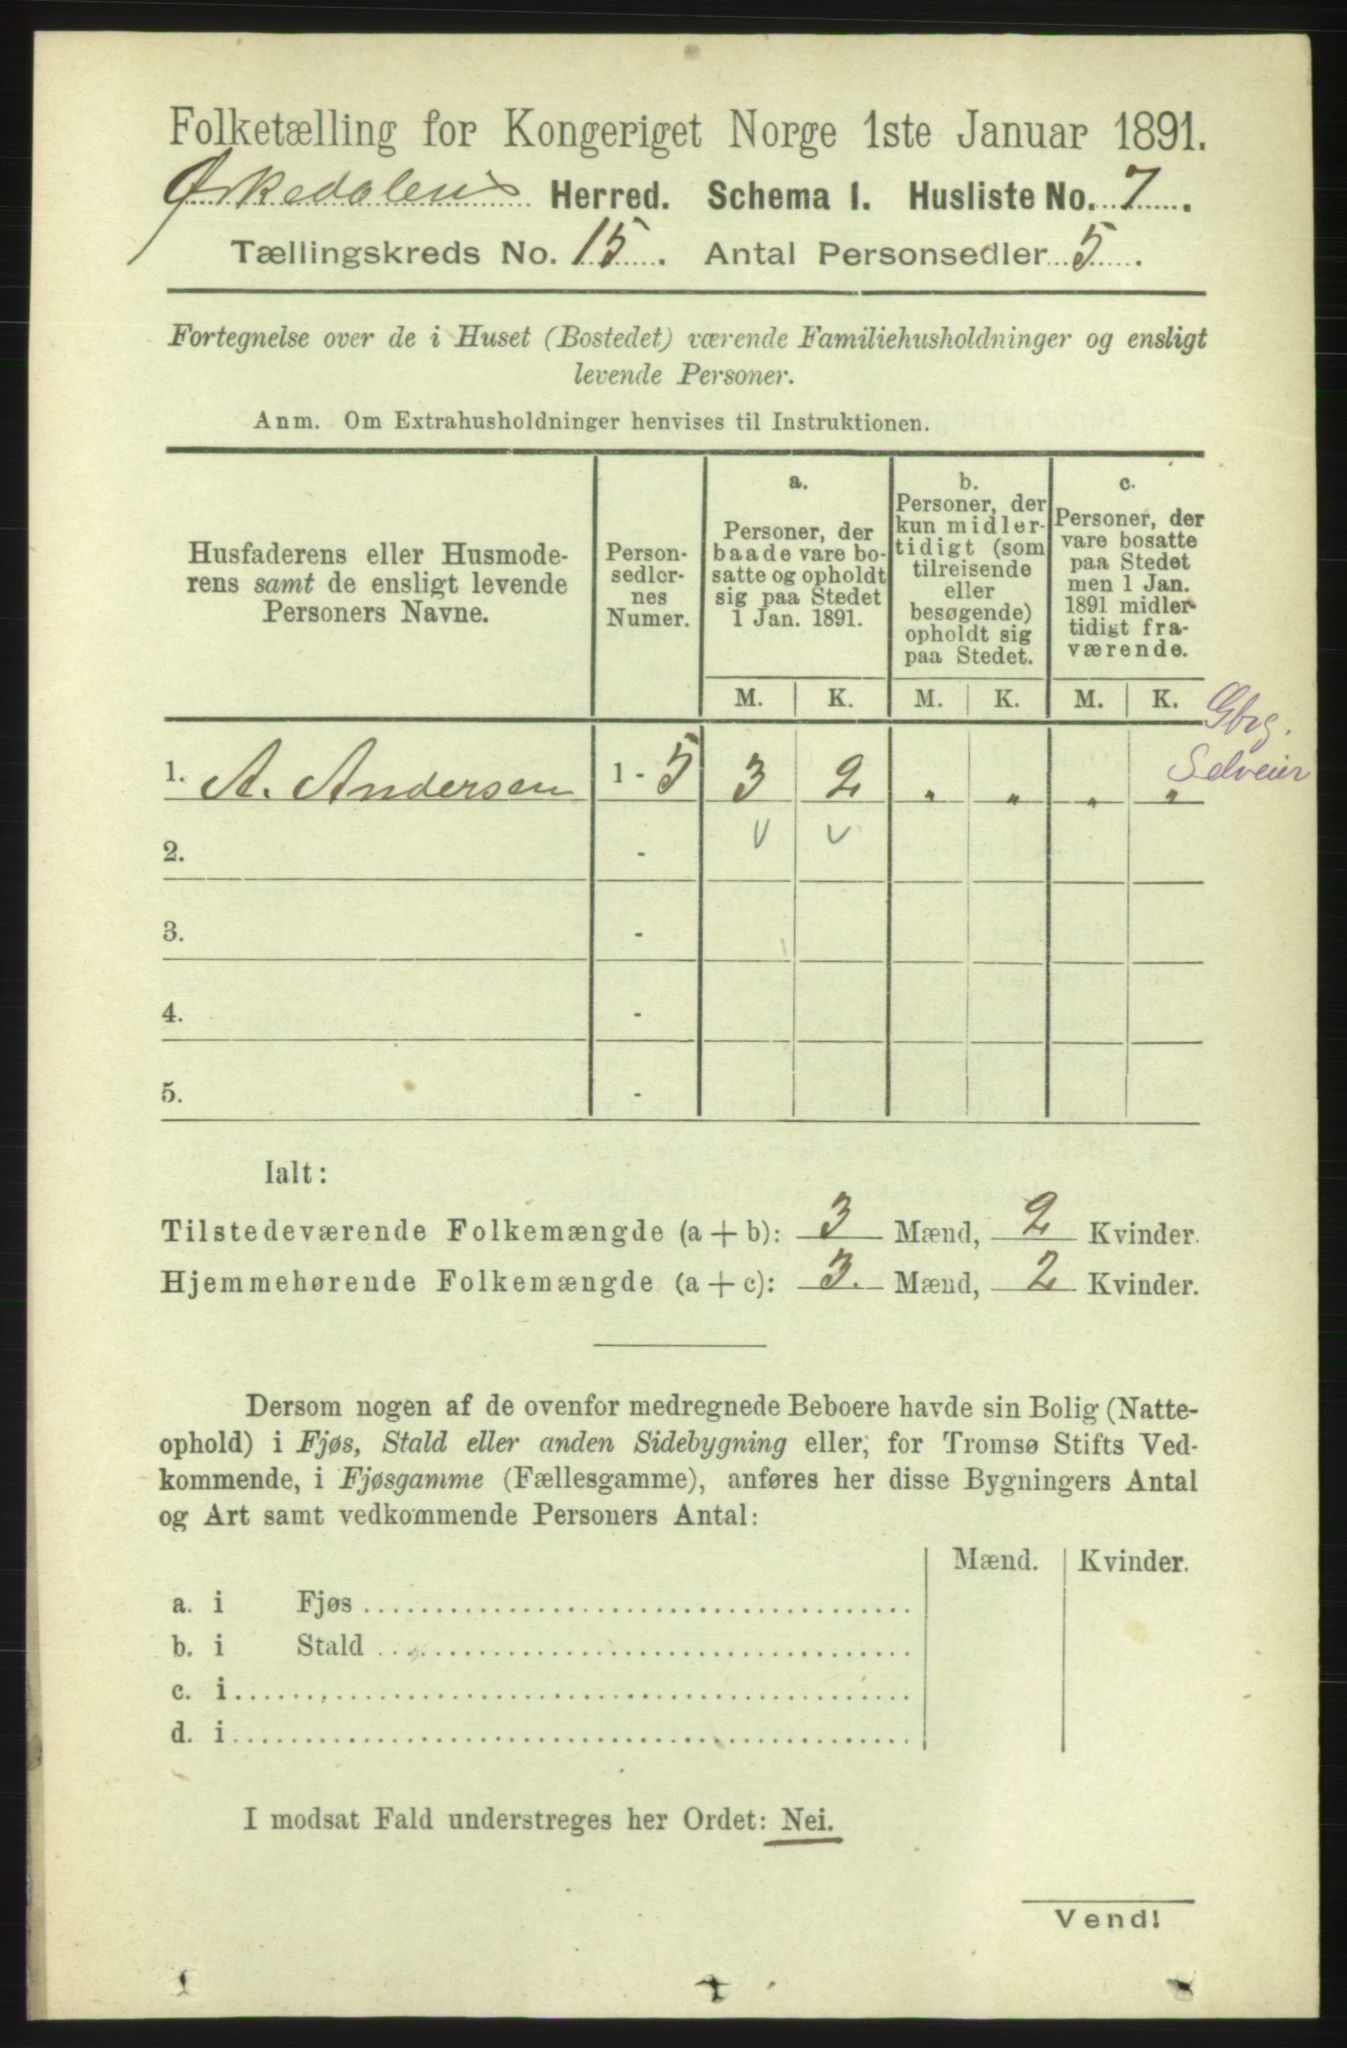 Folketælling for Kongeriget Norge 1ste Januar 1891.
Ørkedalens Herred. Schema I. Husliste No. 7.
Tællingskreds No. 15. Antal Personsedler 5.
Fortegnelse over de i Huset (Bostedet) værende Familiehusholdninger og ensligt
levende Personer.
Anm. Om Extrahusholdninger henvises til Instruktionen.
Husfaderens eller Husmode-
rens samt de ensligt levende
Personers Navne.
Person-
sedler-
nes
Numer.
a.
Personer, der
baade vare bo-
satte og opholdt
sig paa Stedet
1 Jan. 1891.
b.
Personer, der
kun midler-
tidigt (som
tilreisende
eller
besøgende)
opholdt sig
paa Stedet.
c.
Personer, der
vare bosatte
paa Stedet
men 1 Jan.
1891 midler-
tidigt fra-
værende.
M. K. M. K. M. K.
Gbrg.
Selveier
1. A. Andersen 1 - 5 3 2 " " " "
2. -
3. -
4. -
5. -
Ialt:
Tilstedeværende Folkemængde (a + b): 3 Mænd, 2 Kvinder.
Hjemmehørende Folkemængde (a + c): 3. Mænd, 2 Kvinder.
Dersom nogen af de ovenfor medregnede Beboere havde sin Bolig (Natte-
ophold) i Fjøs, Stald eller anden Sidebygning eller, for Tromsø Stifts Ved-
kommende, i Fjøsgamme (Fællesgamme), anføres her disse Bygningers Antal
og Art samt vedkommende Personers Antal:
Mænd. Kvinder.
a. i Fjøs
b. i Stald
c. i
d. i
I modsat Fald understreges her Ordet: Nei.
Vend!